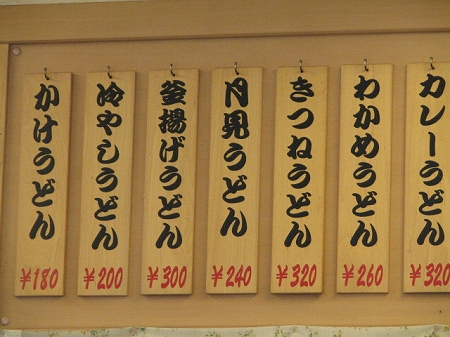 かけうどん
¥180
冷やしうどん
¥200
釜揚げうどん
¥300
月見うどん
¥240
きつねうどん
¥320
わかめうどん
¥260
カレーうどん
¥320